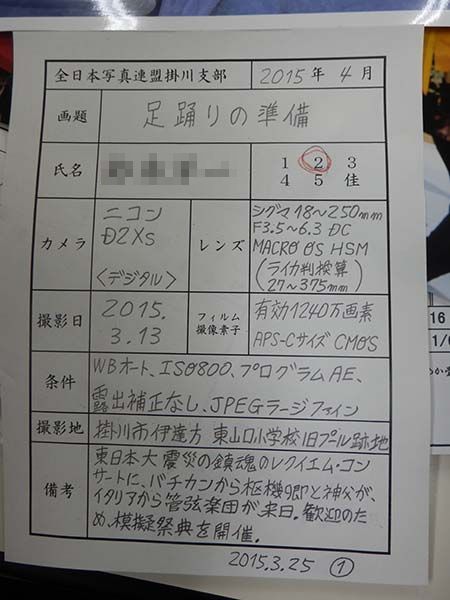 全日本写真連盟掛川支部 2015年 4月
画題 足踊りの準備
氏名 1 2 3
4 5 佳
カメラ ニコン
D2XS
<デジタル>
レンズ シグマ18〜250mm
F3.5〜6.3 DC
MACRO OS HSM
(ライカ判換算
27〜375mm)
撮影日 2015.
3.13
フィルム
撮像素子 有効1240万画素
APS-Cサイズ CMOS
条件 WBオート、ISO800、プログラムAE、
露出補正なし、JPEGラージファイン
撮影地 掛川市伊達方 東山口小学校旧プール跡地
備考 東日本大震災の鎮魂のレクイエム・コン
サートに、バチカンから枢機卿と神父が、
イタリアから管弦楽団が来日。歓迎のた
め、模擬祭典を開催。
2015.3.25 ①
16
1/